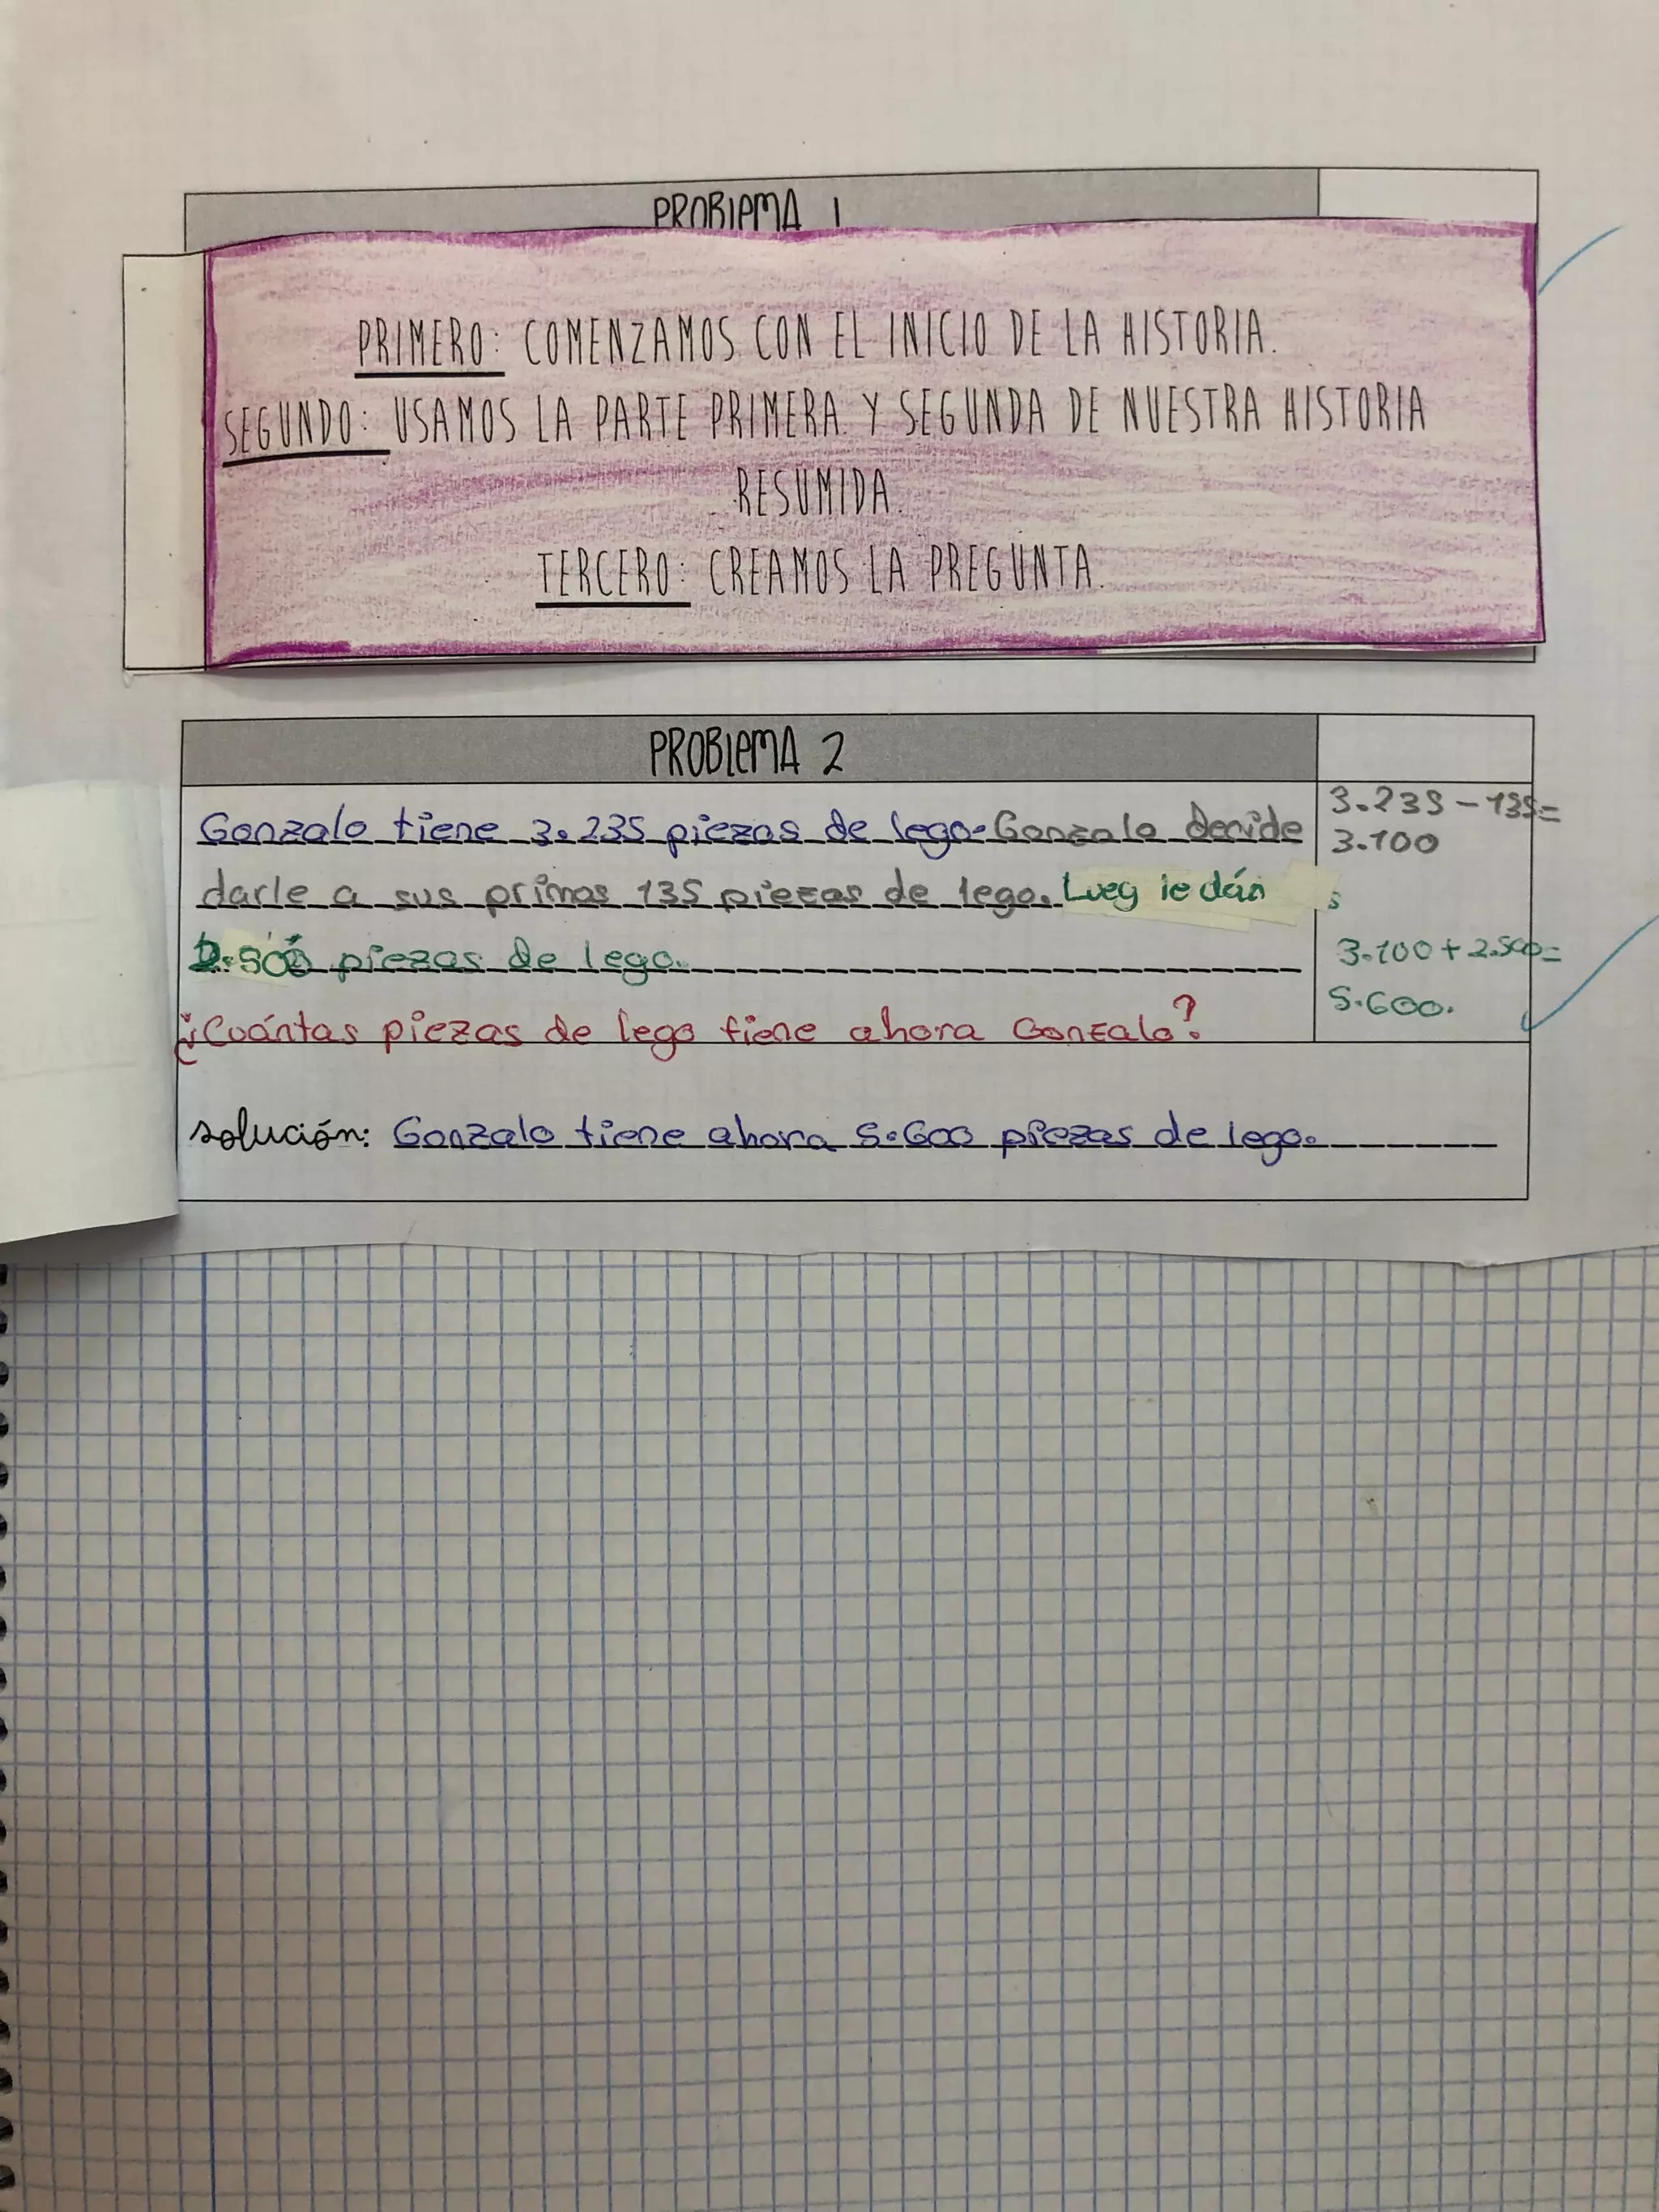 PROBLEMA 1
PRIMERO: COMENZAMOS CON EL INICIO DE LA HISTORIA.
SEGUNDO: USAMOS LA PARTE PRIMERA Y SEGUNDA DE NUESTRA HISTORIA
RESUMIDA.
TERCERO: CREAMOS LA PREGUNTA.
PROBLEMA 2
Gonzalo tiene 3.235 piezas de lego. Gonzalo decide
darle a sus primos 135 piezas de lego. Lueg le dán
2.500 piezas de lego.
¿Cuántas piezas de lego tiene ahora Gonzalo?
3.235 - 135=
3.100
s
3.100 + 2.500=
5.600.
solución: Gonzalo tiene ahora 5.600 piezas de lego.